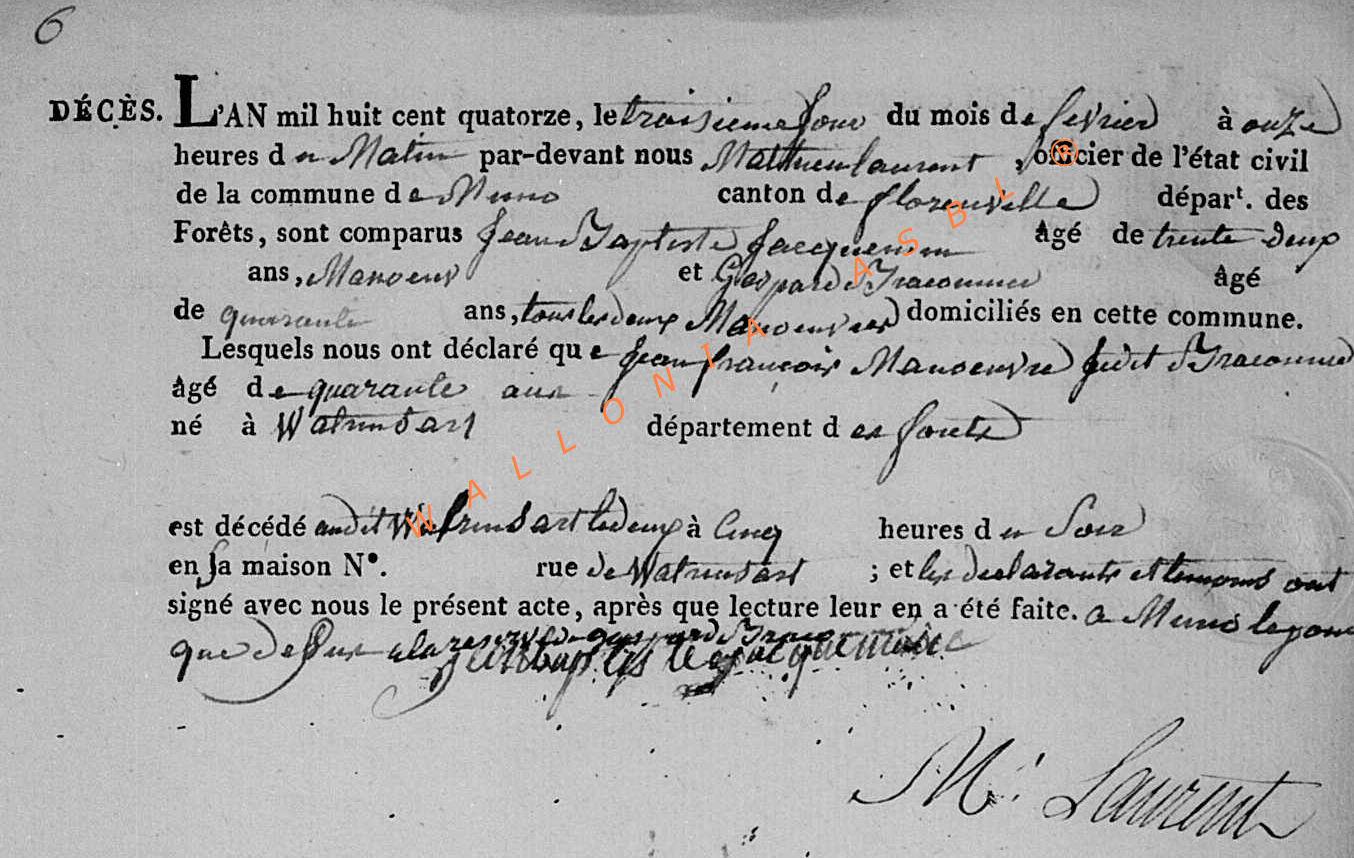 6
DÉCÈS. L'AN mil huit cent quatorze, le troisieme Jour du mois de fevrier à onze
heures du Matin par-devant nous Matthieu laurent , officier de l'état civil
de la commune de Muno canton de florenville départ. des
Forêts, sont comparus Jean Baptiste Jacquemin âgé de trente deux
ans, Manoeuv et Gaspard âgé
de quarante ans, tous les deux Manoeuvres domiciliés en cette commune.
Lesquels nous ont déclaré que Jean françois Manoeuvre
âgé de quarante ans
né à Watrinsart département des forets
est décédé audit Watrinsart le deux à Cinq heures du Soir
en Sa maison N°. rue de Watrinsart ; et les declarants et temoins ont
signé avec nous le présent acte, après que lecture leur en a été faite. a Muno le jour
que deSsus a la reserve de gaspard
M. Laurent
WALLONIA ASBL ®